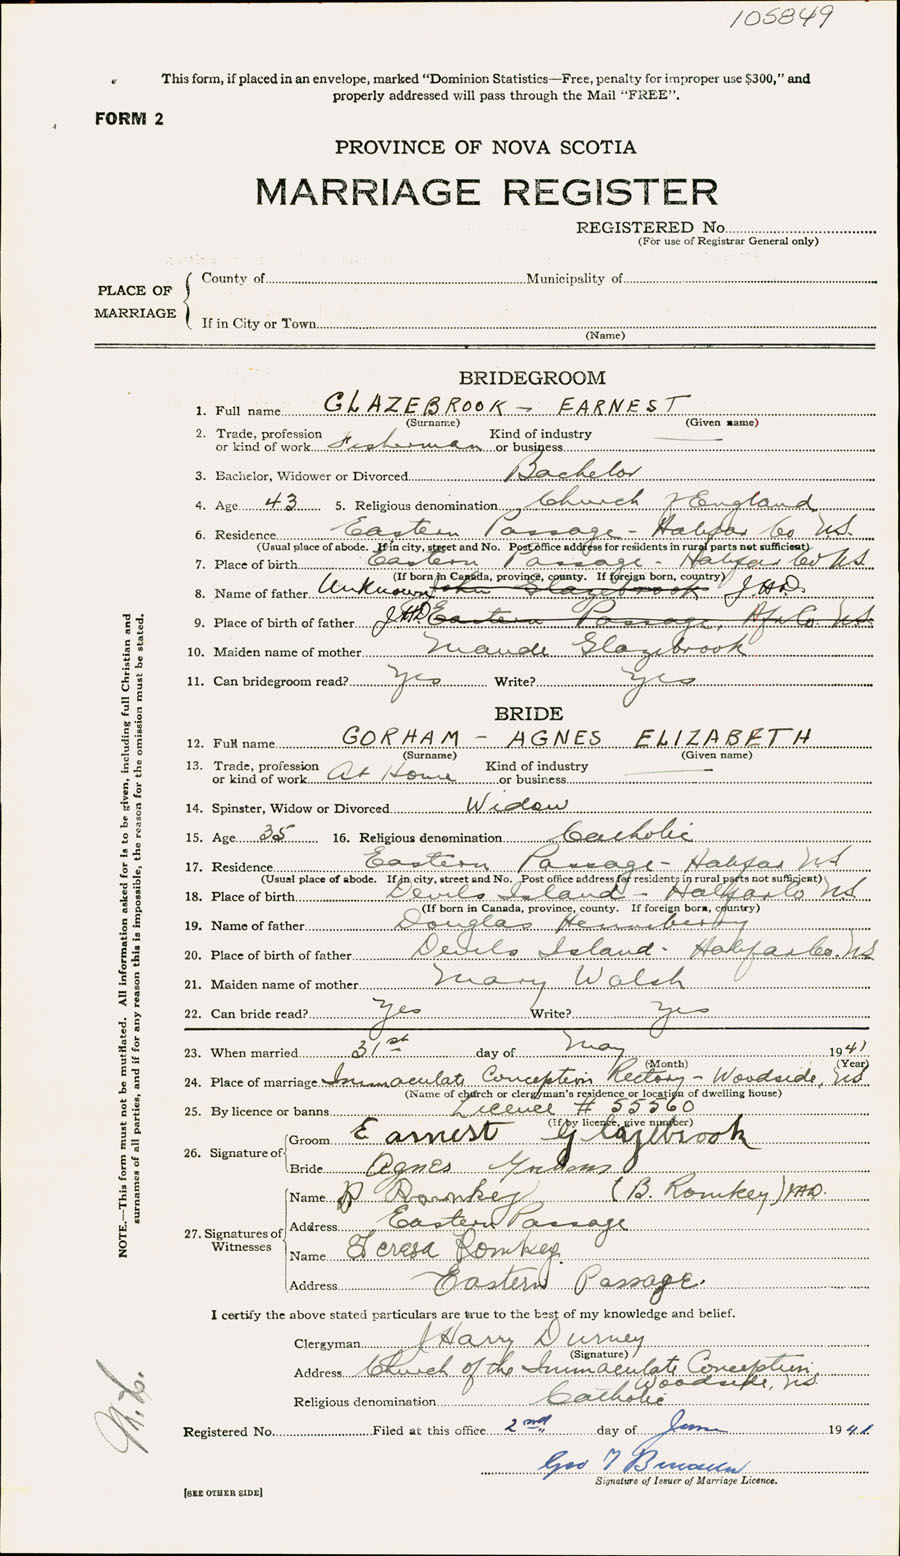 105849
This form, if placed in an envelope, marked "Dominion Statistics—Free, penalty for improper use $300," and
properly addressed will pass through the Mail "FREE".
FORM 2
PROVINCE OF NOVA SCOTIA
MARRIAGE REGISTER
REGISTERED No.
(For use of Registrar General only)
PLACE OF MARRIAGE
County of Municipality of
If in City or Town
(Name)
BRIDEGROOM
1. Full name GLAZEBROOK - EARNEST
(Surname) (Given name)
2. Trade, profession or kind of work Fisherman Kind of industry or business —
3. Bachelor, Widower or Divorced Bachelor
4. Age 43 5. Religious denomination Church of England
6. Residence Eastern Passage - Halifax Co NS.
(Usual place of abode. If in city, street and No. Post office address for residents in rural parts not sufficient)
7. Place of birth Eastern Passage - Halifax Co NS.
(If born in Canada, province, county. If foreign born, country)
8. Name of father Unknown John Glazebrook J.H.D.
9. Place of birth of father J.H.D. Eastern Passage, Hfx Co. NS.
10. Maiden name of mother Maude Glazebrook
11. Can bridegroom read? Yes Write? Yes
BRIDE
12. Full name GORHAM - AGNES ELIZABETH
(Surname) (Given name)
13. Trade, profession or kind of work At Home Kind of industry or business —
14. Spinster, Widow or Divorced Widow
15. Age 35 16. Religious denomination Catholic
17. Residence Eastern Passage - Halifax NS
(Usual place of abode. If in city, street and No. Post office address for residents in rural parts not sufficient)
18. Place of birth Devils Island - Halifax Co NS.
(If born in Canada, province, county. If foreign born, country)
19. Name of father Douglas Henneberry
20. Place of birth of father Devils Island - Halifax Co. NS
21. Maiden name of mother Mary Walsh
22. Can bride read? Yes Write? Yes
23. When married 31st day of May 1941
(Month) (Year)
24. Place of marriage Immaculate Conception Rectory - Woodside, NS
(Name of church or clergyman's residence or location of dwelling house)
25. By licence or banns Licence # 55560
(If by licence, give number)
26. Signature of
Groom Earnest Glazebrook
Bride Agnes
27. Signatures of Witnesses
Name B Romkey (B. Romkey) JHD.
Address Eastern Passage
Name Teresa Romkey.
Address Eastern Passage.
I certify the above stated particulars are true to the best of my knowledge and belief.
Clergyman J Harry Durney
(Signature)
Address Church of the Immaculate Conception
Woodside, NS.
Religious denomination Catholic
Registered No. Filed at this office 2nd day of June 1941
Geo T
Signature of Issuer of Marriage Licence.
[SEE OTHER SIDE]
NOTE.—This form must not be mutilated. All information asked for is to be given, including full Christian and
surnames of all parties, and if for any reason this is impossible, the reason for the omission must be stated.